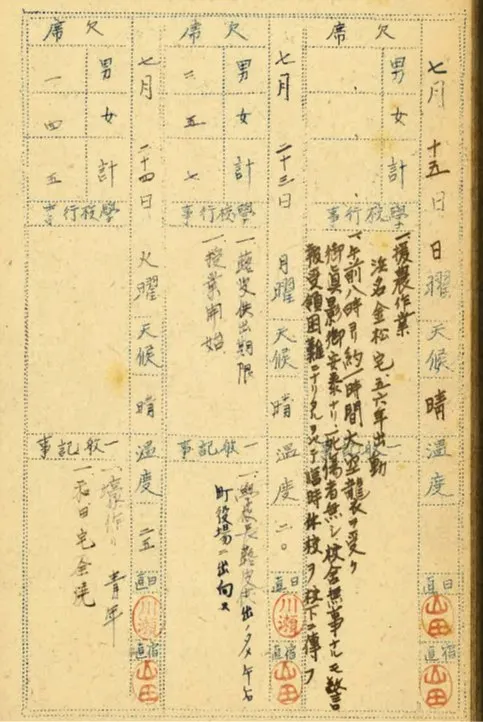 七月 十五日 日曜 天候 晴 温度
日直 山田
宿直 山田
欠席
男
女
計
學校行事
一、援農作業
浜名金松宅、五六年出動
一、午前八時ヨリ約一時間大空襲ヲ受ク
御真影御安泰ナリ 死傷者無シ 校舎無事ナルモ警
報受領困難ニナリタルヲ以テ臨時休校ヲ校下ニ傳フ
七月 二十三日 月曜 天候 晴 温度 二〇
日直 川瀬
宿直 山田
欠席
男 二
女 五
計 七
學校行事
供出期限
一授業開始
一般記事
供出ノタメ午后
町役場ニ出向ス
七月 二十四日 火曜 天候 晴 温度 二五
日直 川瀬
宿直 山田
欠席
男 一
女 四
計 五
學校行事
一般記事
一、濠作リ 青年
宅全焼